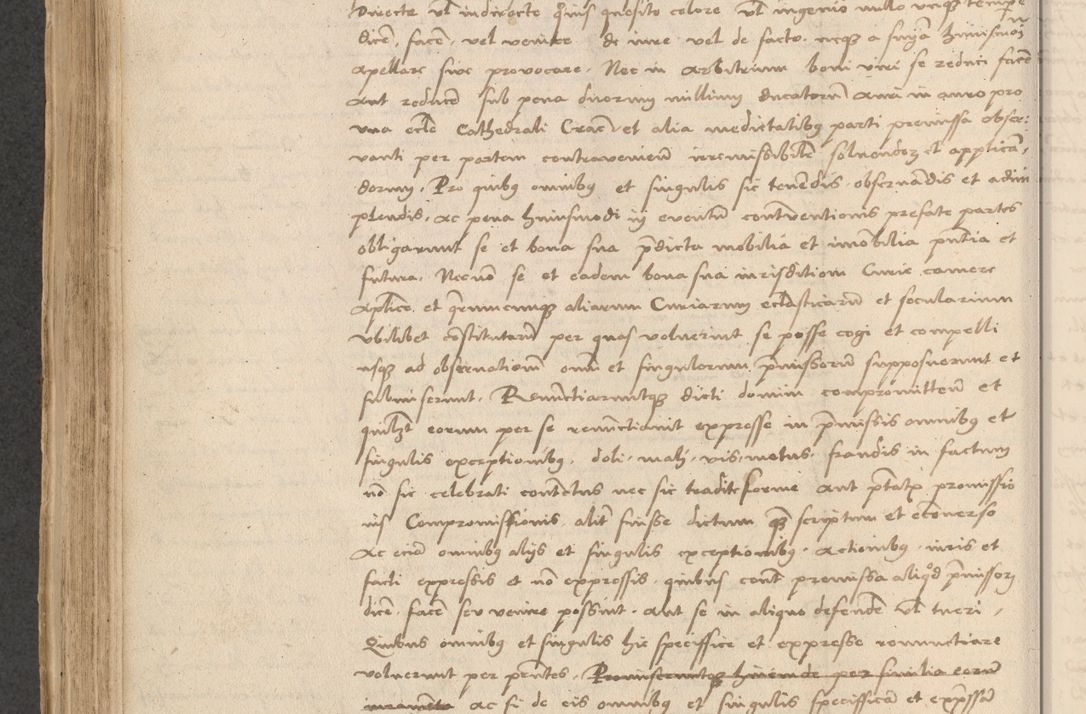 Directe vel indirecte quovis quesito colore vel ingenio nullo unquam tempore
dicere, facere, vel venire de iure vel de facto. neque a sententia huiusmodi
apellare sive provocare. Nec in arbitrium boni viri se reduci facere
aut reducere sub pena duorum millium ducatorum auri in auro pro
una ecclesie Cathedrali Cracoviensi et alia medietatibus parti premissa obser:
vanti per partem contravenientem irremissibiliter solvendorum et applican,
dorum. Pro quibus omnibus et singulis sic tenendis observandis et adim
plendis. ac pena huiusmodi in eventum contraventionis prefate partes
obligarunt se et bona sua predicta mobilia et imobilia presentia et
futura. Necnon se et eadem bona sua iurisditioni Curie camere
Apostolice et quarumcumque aliarum Curiarum ecclesiasticarum et secularium
ubilibet constitutarum per quas voluerint se posse cogi et compelli
usque ad observationem omnium et singulorum premissorum supposuerunt et
submiserunt. Renunctiaruntque dicti domini compromittentes et
quilibet eorum per se renunctiavit expresse in premissis omnibus et
singulis exceptionibus. doli. mali. vis. metus. fraudis in factum
non sic celebrati contractus nec sic tradite forme aut
Compromissionis. aliter fuisse dictum quam scriptum et econverso
ac etiam omnibus alijs et singulis exceptionibus. actionibus. iuris et
facti expressis et non expressis. quibus contra premissa aliquod premissorum
dicere. facere seu venire possint. aut se in aliquo defendere vel tueri.
Quibus omnibus et singulis hic speciffice et expresse renunctiare
voluerunt per presentes. Promiseruntque huiusmodi per similia eorum
iuramenta ac si de eis omnibus et singulis specifficam et expressam